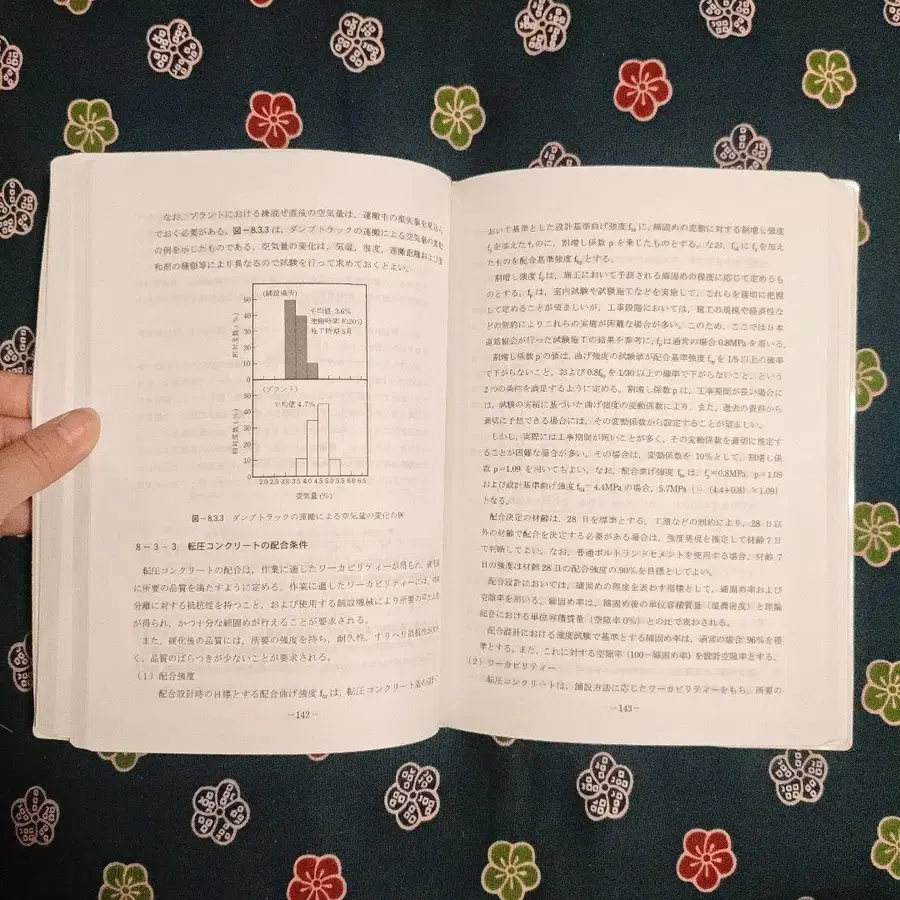 なお、プラントにおける練混ぜ直後の空気量は、運搬中の損失量を見込ん
でおく必要がある。図-8.3.3は、ダンプトラックの運搬による空気量の変化
の例を示したものである。空気量の変化は、気温、湿度、運搬距離および混
和剤の種類等により異なるので試験を行って求めておくとよい。
(舗設場所)
平均値 3.6%
運搬時間 約20分
施工時期 5月
相対度数 (%)
50
40
30
20
10
0
(プラント)
平均値 4.7%
相対度数 (%)
50
40
30
20
10
0
2.0 2.5 3.0 3.5 4.0 4.5 5.0 5.5 6.0 6.5
空気量 (%)
図-8.3.3 ダンプトラックの運搬による空気量の変化の例
8-3-3 転圧コンクリートの配合条件
転圧コンクリートの配合は、作業に適したワーカビリティーが得られ、硬化後
に所要の品質を満たすように定める。作業に適したワーカビリティーには、材料
分離に対する抵抗性を持つこと、および使用する舗設機械により所要の平たん性
が得られ、かつ十分な締固めが行えることが要求される。
また、硬化後の品質には、所要の強度を持ち、耐久性、すりへり抵抗性が大き
く、品質のばらつきが少ないことが要求される。
(1) 配合強度
配合設計時の目標とする配合曲げ強度 fbr は、転圧コンクリート版の設計に
-142-
おいて基準とした設計基準曲げ強度 fbk に、締固めの変動に対する割増し強度
fr を加えたものに、割増し係数 p を乗じたものとする。なお、fbk に fr を加え
たものを配合基準強度とする。
割増し強度 fr は、施工において予測される締固めの程度に応じて定めるも
のとする。fr は、室内試験や試験施工などを実施して、これらを適切に把握
して定めることが望ましいが、工事段階においては、施工の規模や経済性な
どの制約によりこれらの実施が困難な場合が多い。このため、ここでは日本
道路協会が行った試験施工の結果を参考に、fr は通常の場合 0.8MPa を用いる。
割増し係数 p の値は、曲げ強度の試験値が配合基準強度を 1/5 以上の確率
で下がらないこと、および 0.8 を 1/30 以上の確率で下がらないこと、という
2つの条件を満足するように定める。割増し係数 p は、工事期間が長い場合に
は、試験の実績に基づいた曲げ強度の変動係数により、また、過去の資料から
適切に予想できる場合には、その変動係数から設定することが望ましい。
しかし、実際には工事期間が短いことが多く、その変動係数を適切に推定す
ることが困難な場合が多い。その場合は、変動係数を 10%として、割増し係
数 p=1.09 を用いてもよい。なお、配合曲げ強度は、fr=0.8MPa、p=1.09
および設計基準曲げ強度 =4.4MPa の場合、5.7MPa [≒ (4.4+0.8) ×1.09]
となる。
配合決定の材齢は、28 日を標準とする。工期などの制約により、28 日以
外の材齢で配合を決定する必要がある場合は、強度発現を推定して材齢 7 日
で判断してよい。なお、普通ポルトランドセメントを使用する場合、材齢 7
日の強度は材齢 28 日の配合強度の 90%を目標としてよい。
配合設計においては、締固めの程度を表わす指標として、締固め率および
空隙率を用いる。締固め率は、締固め後の単位容積質量（湿潤密度）と理論
配合における単位容積質量（空隙率 0%）との比で表わされる。
配合設計における強度試験で基準とする締固め率は、通常の場合 96%を標
準とする。また、これに対する空隙率 (100-締固め率) を設計空隙率とする。
(2) ワーカビリティー
転圧コンクリートは、舗設方法に応じたワーカビリティーをもち、所要の
-143-